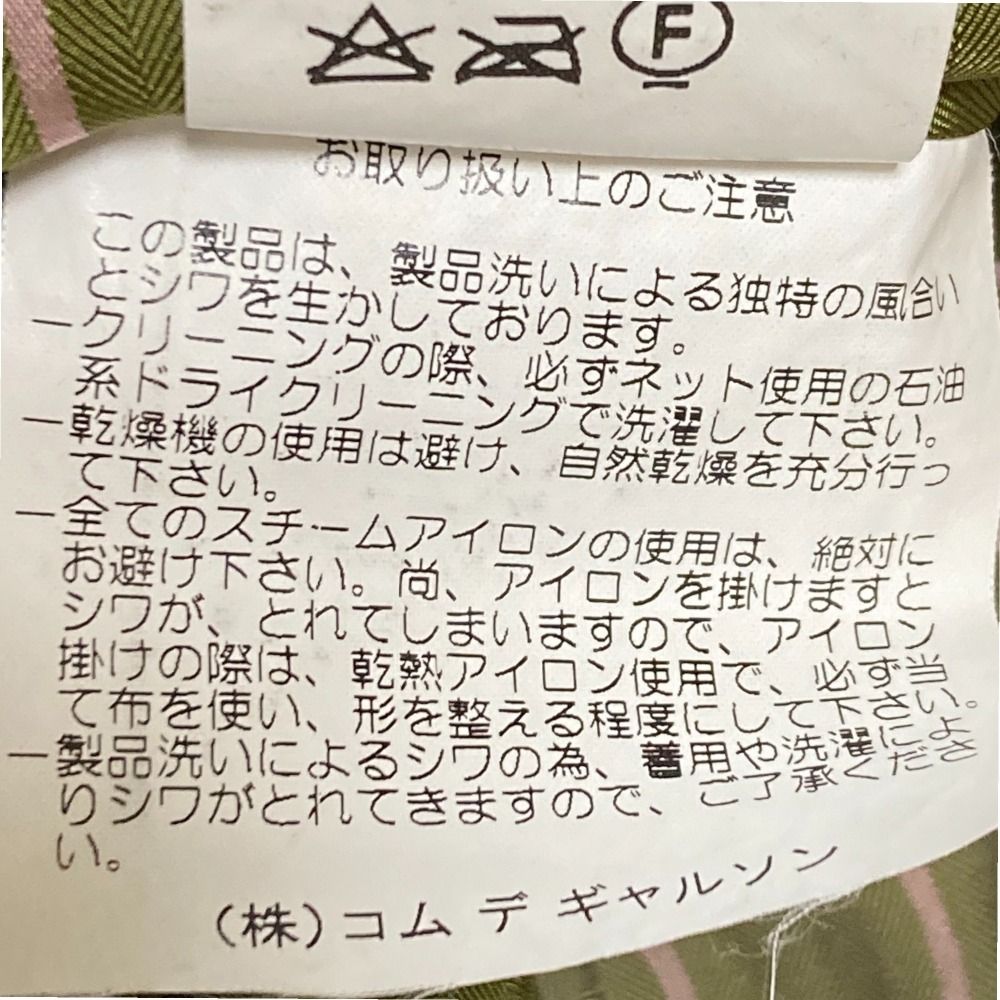 F
お取り扱い上のご注意
この製品は、製品洗いによる独特の風合い
とシワを生かしております。
ークリーニングの際、必ずネット使用の石油
系ドライクリーニングで洗濯して下さい。
ー乾燥機の使用は避け、自然乾燥を充分行っ
て下さい。
ー全てのスチームアイロンの使用は、絶対に
お避け下さい。尚、アイロンを掛けますと
シワが、とれてしまいますので、アイロン
掛けの際は、乾熱アイロン使用で、必ず当
て布を使い、形を整える程度にして下さい。
ー製品洗いによるシワの為、着用や洗濯によ
りシワがとれてきますので、ご了承くださ
い。
(株)コム デ ギャルソン